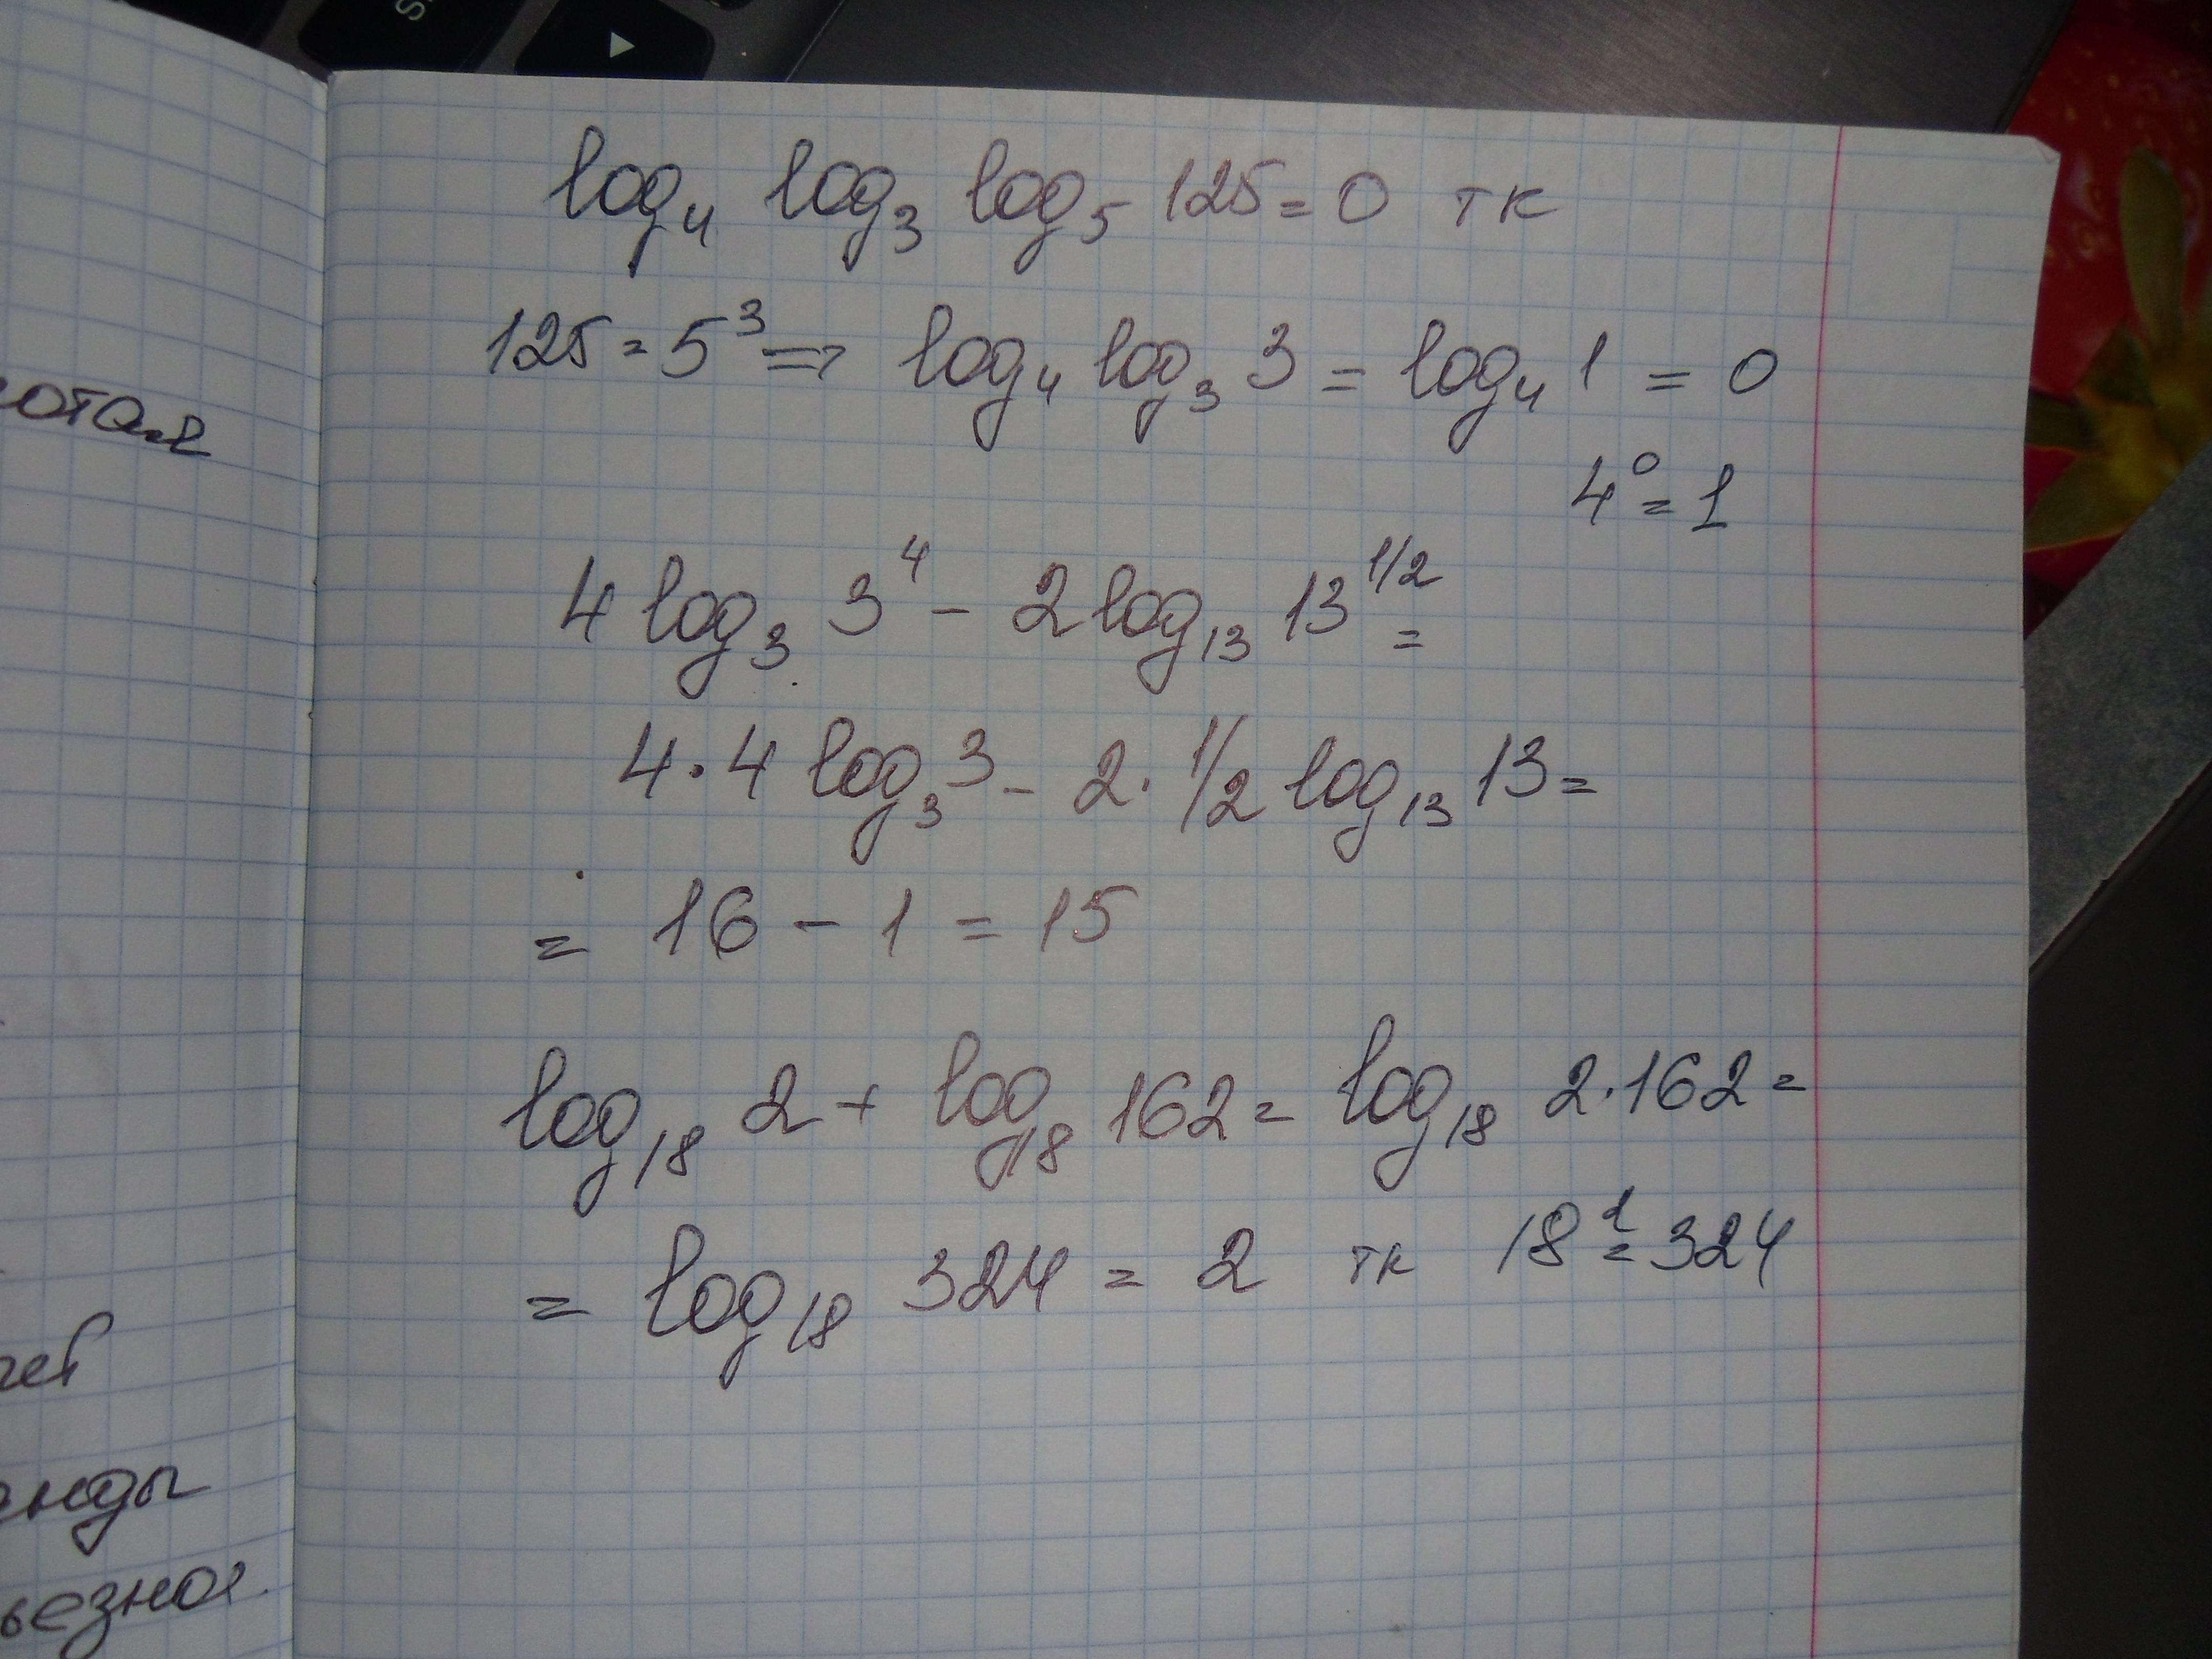 log₄ log₃ log₅ 125 = 0 тк
125 = 5³ => log₄ log₃ 3 = log₄ 1 = 0
4⁰ = 1
4 log₃ 3⁴ - 2 log₁₃ 13^1/2 =
4·4 log₃ 3 - 2·1/2 log₁₃ 13 =
= 16 - 1 = 15
log₁₈ 2 + log₁₈ 162 = log₁₈ 2·162 =
= log₁₈ 324 = 2 тк 18² = 324